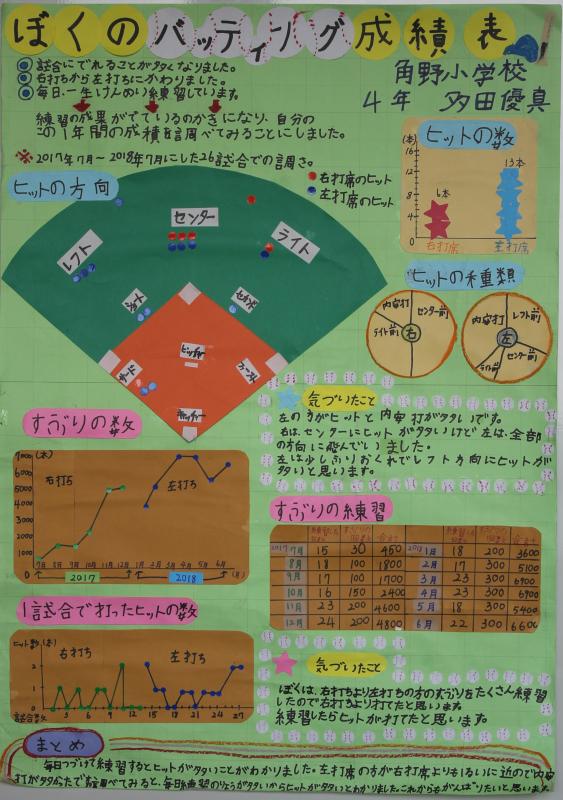 ぼくのバッティング成績表
角野小学校
4年 多田優真
◎試合にでれることが多くなりました。
◎右打ちから左打ちにかわりました。
◎毎日一生けんめい練習しています。
練習の成果がでているのかきになり、自分の
この1年間の成積を調べてみることにしました。
※2017年7月~2018年7月にした26試合での調さ。
ヒットの方向
●右打席のヒット
●左打席のヒット
センター
レフト
ライト
ショート
セカンド
サード
ピッチャー
ファースト
キャッチャー
ヒットの数
(本)
16
12
8
4
0
6本
13本
右打席
左打席
ヒットの種類
内安打
センター前
ライト前
右
内安打
レフト前
センター前
ライト前
左
気づいたこと
左の方がヒットと内安打が多いです。
右はセンターにヒットが多いけど左は、全部
の方向に飛んでいました。
左は少しふりおくれでレフト方向にヒットが
多いと思います。
すぶりの数
(本)
7000
6000
5000
4000
3000
2000
1000
0
右打ち
左打ち
7月 8月 9月 10月 11月 12月 1月 2月 3月 4月 5月 6月 (月)
2017
2018
すぶりの練習
2017 7月 15 30 450 2018 1月 18 200 3600
8月 18 100 1800 2月 17 300 5100
9月 17 100 1700 3月 23 300 6900
10月 16 150 2400 4月 23 300 6900
11月 23 200 4600 5月 18 300 5400
12月 24 200 4800 6月 22 300 6600
1試合で打ったヒットの数
ヒット数(本)
2
1
0
右打ち
左打ち
試合数 3 6 9 12 15 18 21 24 27
気づいたこと
ぼくは、右打ちより左打ちの方のすぶりをたくさん練習
したので右打ちより打てたと思います。
練習したらヒットが打てたと思います。
まとめ
毎日つづけて練習するとヒットが多いことがわかりました。左打席の方が右打席よりも1るいに近いので内安
打が多かったで調べてみると、毎日練習のりょうが多いからヒットが多いとわかりました。これからもがんばりたいと思います。